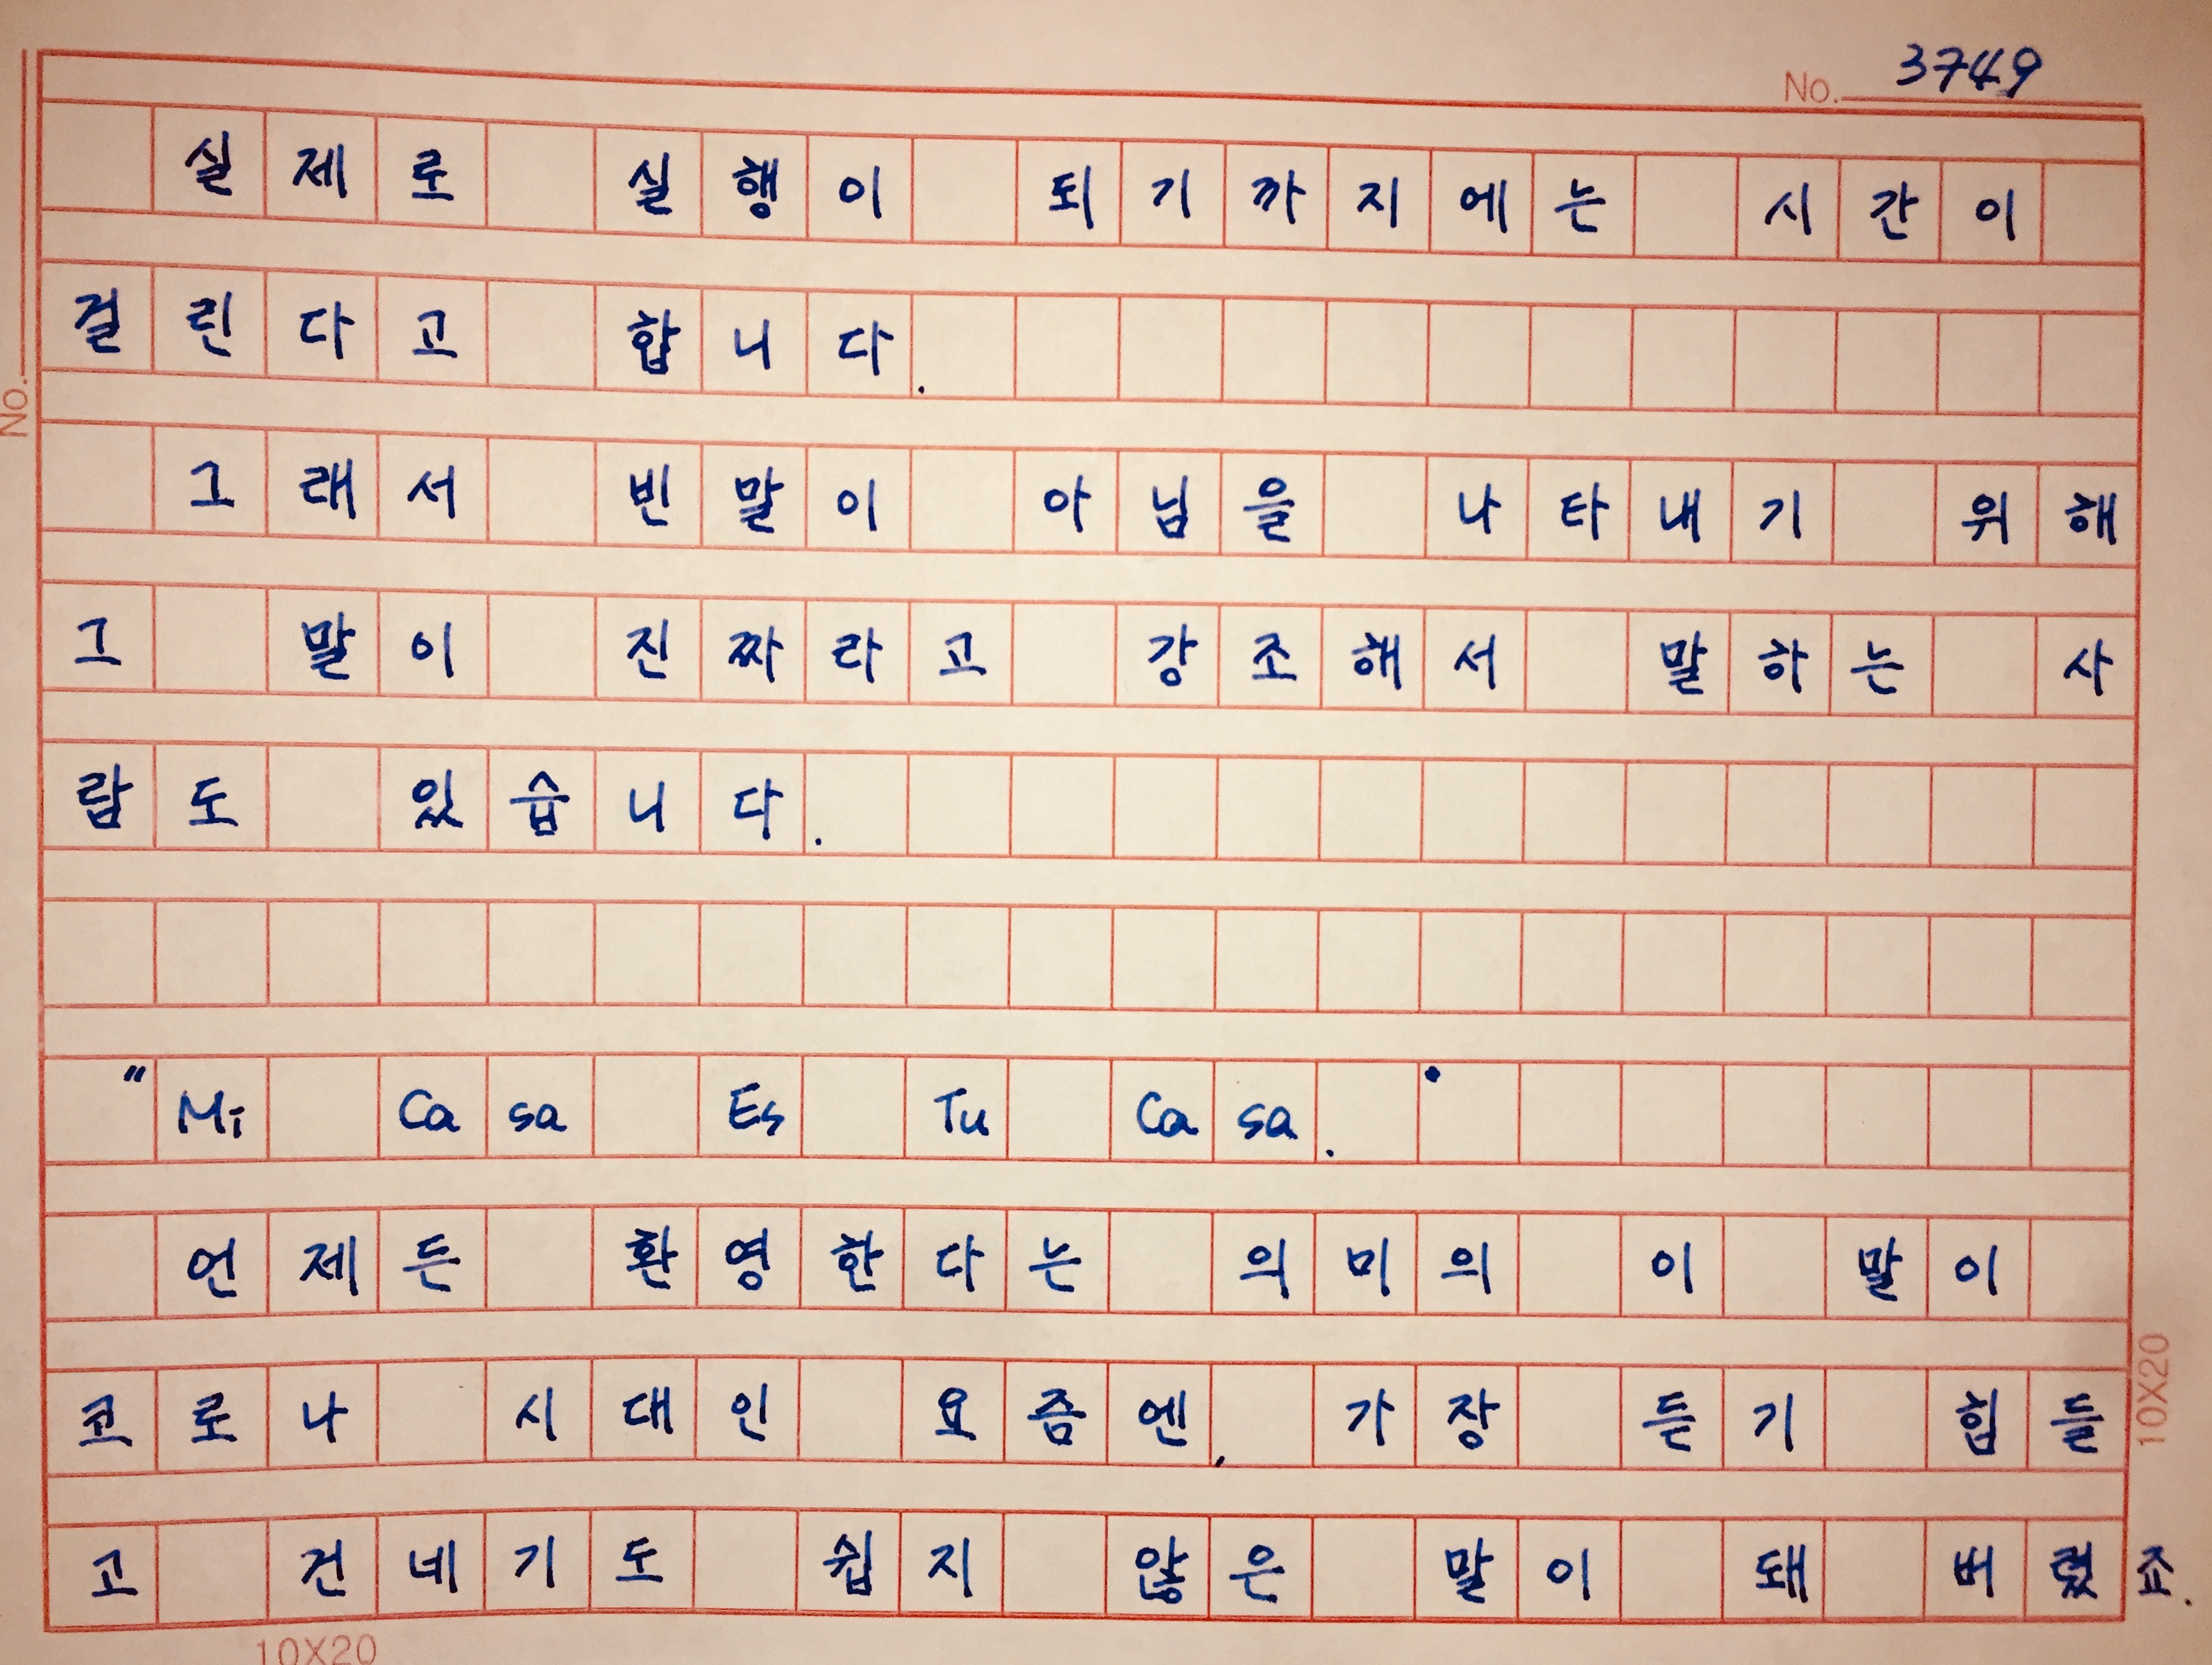 No. 3749
실제로 실행이 되기까지에는 시간이
걸린다고 합니다.
No.
그래서 빈말이 아님을 나타내기 위해
그 말이 진짜라고 강조해서 말하는 사
람도 있습니다.
"Mi Casa Es Tu Casa."
언제든 환영한다는 의미의 이 말이
코로나 시대인 요즘엔, 가장 듣기 힘들
고 건네기도 쉽지 않은 말이 돼 버렸죠.
10X20
10X20